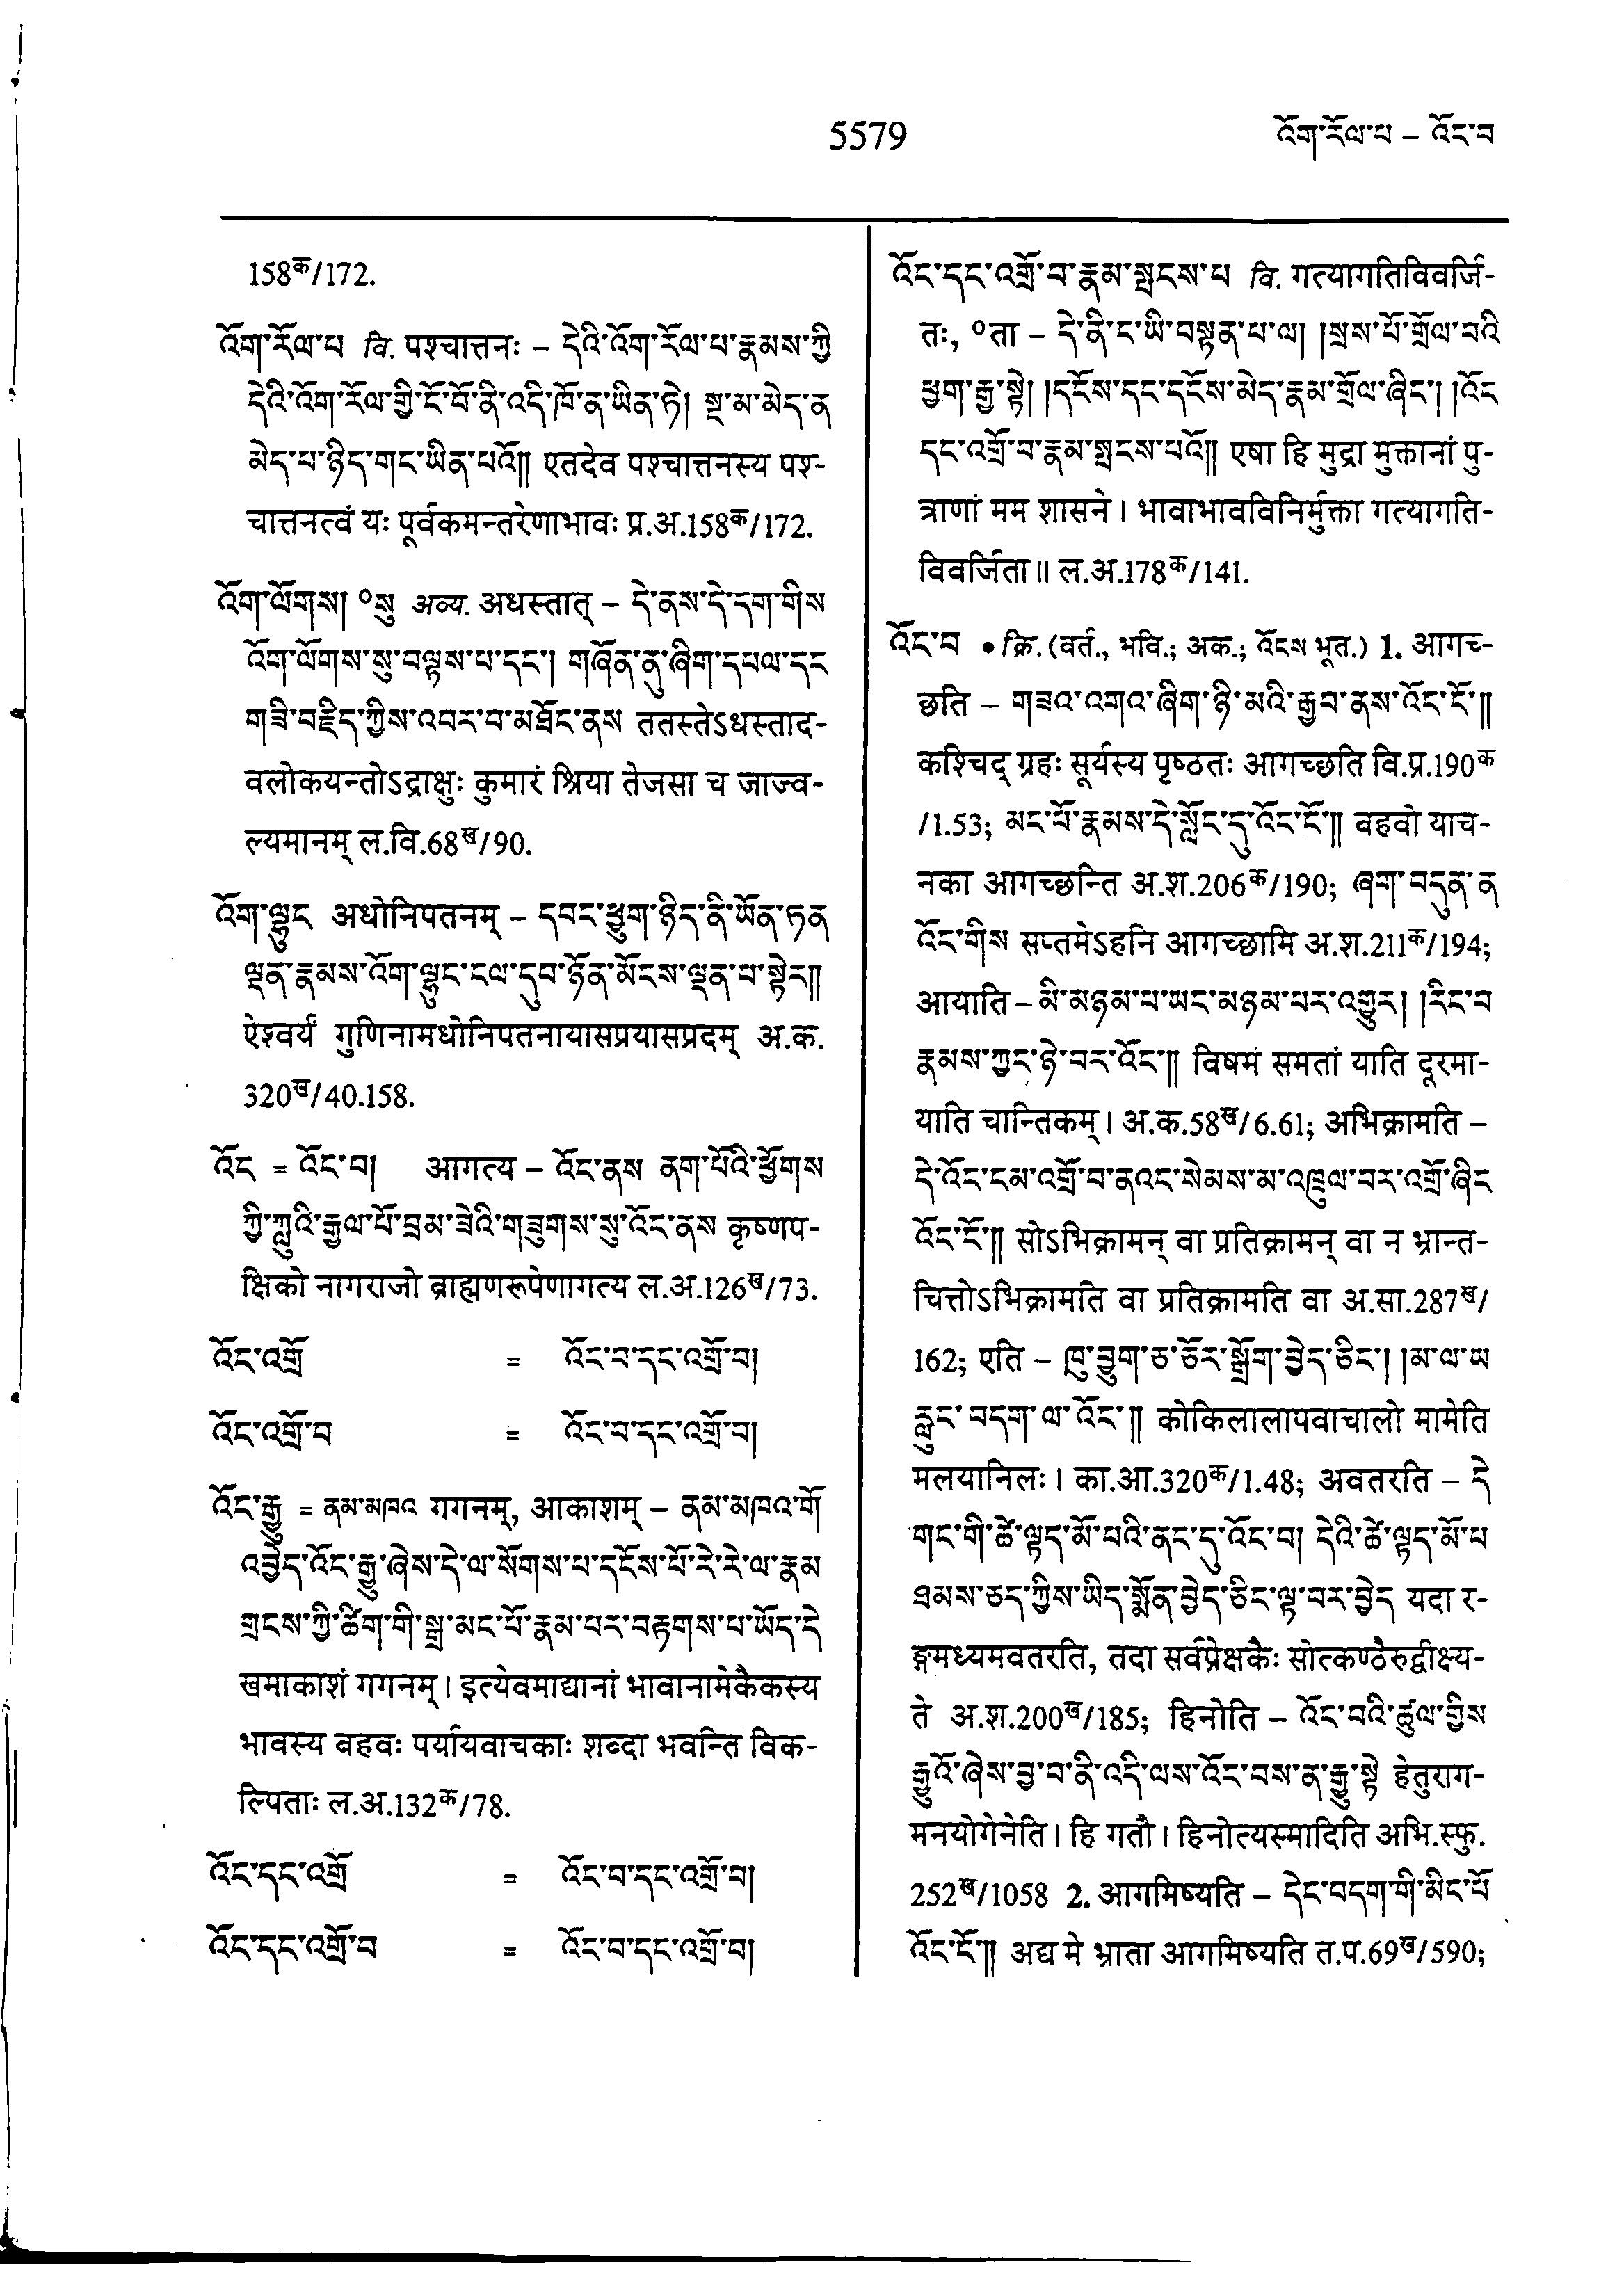 5579
འོག་རོལ་པ – འོང་བ
158क/172.
འོག་རོལ་པ वि. पश्चात्तनः – དེའི་འོག་རོལ་པ་རྣམས་ཀྱི
དེའི་འོག་རོལ་གྱི་ངོ་བོ་ནི་འདི་ཁོ་ན་ཡིན་ཏེ། སྔ་མ་མེད་ན
མེད་པ་ཉིད་གང་ཡིན་པའོ།། एतदेव पश्चात्तनस्य पश्-
चात्तनत्वं यः पूर्वकमन्तरेणाभावः प्र.अ.158क/172.
འོག་ལོགས། ॰སུ अव्य. अधस्तात् – དེ་ནས་དེ་དག་གིས
འོག་ལོགས་སུ་བལྟས་པ་དང་། གཞོན་ནུ་ཞིག་དཔལ་དང
གཟི་བརྗིད་ཀྱིས་འབར་བ་མཐོང་ནས ततस्तेऽधस्ताद-
वलोकयन्तोऽद्राक्षुः कुमारं श्रिया तेजसा च जाज्व-
ल्यमानम् ल.वि.68ख/90.
འོག་ལྷུང अधोनिपतनम् – དབང་ཕྱུག་ཉིད་ནི་ཡོན་ཏན
ལྡན་རྣམས་འོག་ལྷུང་ངལ་དུབ་ཉོན་མོངས་ལྡན་པ་སྟེར།།
ऐश्वर्यं गुणिनामधोनिपतनायासप्रयासप्रदम् अ.क.
320ख/40.158.
འོང = འོང་བ། आगत्य – འོང་ནས ནག་པོའི་ཕྱོགས
ཀྱི་ཀླུའི་རྒྱལ་པོ་བྲམ་ཟེའི་གཟུགས་སུ་འོང་ནས कृष्णप-
क्षिको नागराजो ब्राह्मणरूपेणागत्य ल.अ.126ख/73.
འོང་འགྲོ = འོང་བ་དང་འགྲོ་བ།
འོང་འགྲོ་བ = འོང་བ་དང་འགྲོ་བ།
འོང་རྒྱུ = ནམ་མཁའ गगनम्, आकाशम् – ནམ་མཁའ་གོ
འབྱེད་འོང་རྒྱུ་ཞེས་དེ་ལ་སོགས་པ་དངོས་པོ་རེ་རེ་ལ་རྣམ
གྲངས་ཀྱི་ཚིག་གི་སྒྲ་མང་པོ་རྣམ་པར་བརྟགས་པ་ཡོད་དེ
खमाकाशं गगनम्। इत्येवमाद्यानां भावानामेकैकस्य
भावस्य बहवः पर्यायवाचकाः शब्दा भवन्ति विक-
ल्पिताः ल.अ.132क/78.
འོང་དང་འགྲོ = འོང་བ་དང་འགྲོ་བ།
འོང་དང་འགྲོ་བ = འོང་བ་དང་འགྲོ་བ།
འོང་དང་འགྲོ་བ་རྣམ་སྤངས་པ वि. गत्यागतिविवर्जि-
तः, ॰ता – དེ་ནི་ང་ཡི་བསྟན་པ་ལ། །སྲས་པོ་གྲོལ་བའི
ཕྱག་རྒྱ་སྟེ། །དངོས་དང་དངོས་མེད་རྣམ་གྲོལ་ཞིང་། །འོང
དང་འགྲོ་བ་རྣམ་སྤངས་པའོ།། एषा हि मुद्रा मुक्तानां पु-
त्राणां मम शासने। भावाभावविनिर्मुक्ता गत्यागति-
विवर्जिता॥ ल.अ.178क/141.
འོང་བ • क्रि. (वर्त., भवि.; अक.; འོངས भूत.) 1. आगच्-
छति – གཟའ་འགའ་ཞིག་ཉི་མའི་རྒྱབ་ནས་འོང་ངོ་།།
कश्चिद् ग्रहः सूर्यस्य पृष्ठतः आगच्छति वि.प्र.190क
/1.53; མང་པོ་རྣམས་དེ་སློང་དུ་འོང་ངོ་།། बहवो याच-
नका आगच्छन्ति अ.श.206क/190; ཞག་བདུན་ན
འོང་གིས सप्तमेऽहनि आगच्छामि अ.श.211क/194;
आयाति – མི་མཉམ་པ་ཡང་མཉམ་པར་འགྱུར། །རིང་བ
རྣམས་ཀྱང་ཉེ་བར་འོང་།། विषमं समतां याति दूरमा-
याति चान्तिकम्। अ.क.58ख/6.61; अभिक्रामति –
དེ་འོང་ངམ་འགྲོ་བ་ནའང་སེམས་མ་འཁྲུལ་བར་འགྲོ་ཞིང
འོང་ངོ་།། सोऽभिक्रामन् वा प्रतिक्रामन् वा न भ्रान्त-
चित्तोऽभिक्रामति वा प्रतिक्रामति वा अ.सा.287ख/
162; एति – ཁུ་བྱུག་ཅ་ཅོར་སྒྲོག་བྱེད་ཅིང་། །མ་ལ་ཡ
རླུང་བདག་ལ་འོང་།། कोकिलालापवाचालो मामेति
मलयानिलः। का.आ.320क/1.48; अवतरति – དེ
གང་གི་ཚེ་ལྟད་མོ་པའི་ནང་དུ་འོང་བ། དེའི་ཚེ་ལྟད་མོ་པ
ཐམས་ཅད་ཀྱིས་ཡིད་སྨོན་བྱེད་ཅིང་ལྟ་བར་བྱེད यदा र-
ङ्गमध्यमवतरति, तदा सर्वप्रेक्षकैः सोत्कण्ठैरुद्वीक्ष्य-
ते अ.श.200ख/185; हिनोति – འོང་བའི་ཚུལ་གྱིས
རྒྱུའོ་ཞེས་བྱ་བ་ནི་འདི་ལས་འོང་བས་ན་རྒྱུ་སྟེ हेतुराग-
मनयोगेनेति। हि गतौ। हिनोत्यस्मादिति अभि.स्फु.
252ख/1058 2. आगमिष्यति – དེང་བདག་གི་མིང་པོ
འོང་ངོ་།། अद्य मे भ्राता आगमिष्यति त.प.69ख/590;